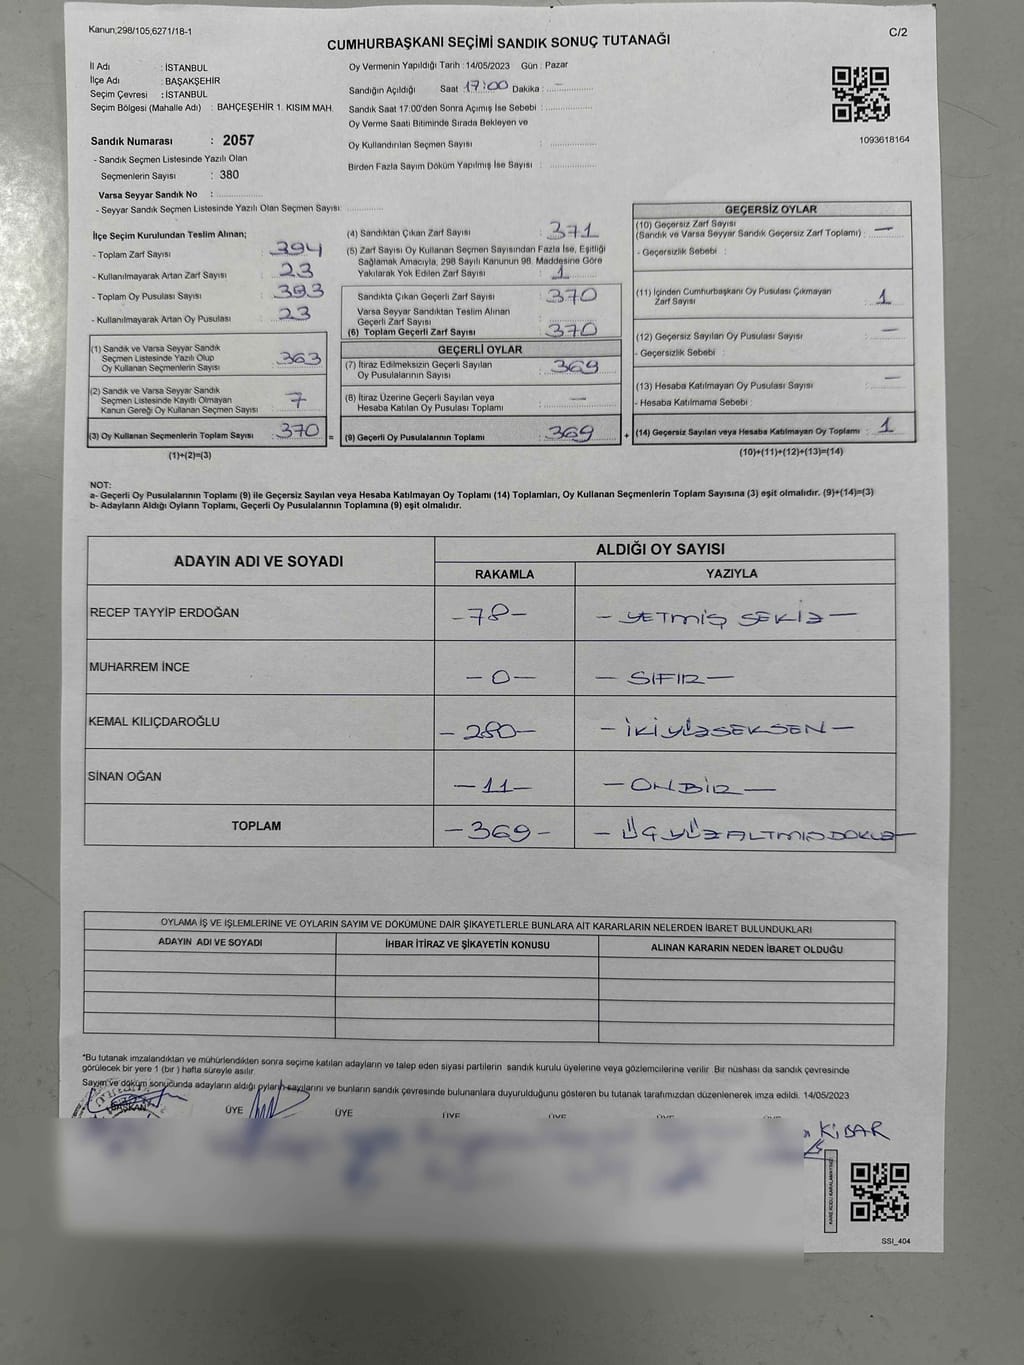 Kanun;298/105,6271/18-1
C/2
CUMHURBAŞKANI SEÇİMİ SANDIK SONUÇ TUTANAĞI
İl Adı : İSTANBUL
İlçe Adı : BAŞAKŞEHİR
Seçim Çevresi : İSTANBUL
Seçim Bölgesi (Mahalle Adı) : BAHÇEŞEHİR 1. KISIM MAH.
Oy Vermenin Yapıldığı Tarih : 14/05/2023 Gün : Pazar
Sandığın Açıldığı Saat 17:00 Dakika :
Sandık Saat 17:00'den Sonra Açımış İse Sebebi :
Oy Verme Saati Bitiminde Sırada Bekleyen ve
Oy Kullandırılan Seçmen Sayısı :
Birden Fazla Sayım Döküm Yapılmış İse Sayısı :
1093618164
Sandık Numarası : 2057
- Sandık Seçmen Listesinde Yazılı Olan
Seçmenlerin Sayısı : 380
Varsa Seyyar Sandık No :
- Seyyar Sandık Seçmen Listesinde Yazılı Olan Seçmen Sayısı:
İlçe Seçim Kurulundan Teslim Alınan;
- Toplam Zarf Sayısı : 394
- Kullanılmayarak Artan Zarf Sayısı : 23
- Toplam Oy Pusulası Sayısı : 393
- Kullanılmayarak Artan Oy Pusulası : 23
(1) Sandık ve Varsa Seyyar Sandık
Seçmen Listesinde Yazılı Olup
Oy Kullanan Seçmenlerin Sayısı : 363
(2) Sandık ve Varsa Seyyar Sandık
Seçmen Listesinde Kayıtlı Olmayan
Kanun Gereği Oy Kullanan Seçmen Sayısı : 7
(3) Oy Kullanan Seçmenlerin Toplam Sayısı : 370 =
(1)+(2)=(3)
(4) Sandıktan Çıkan Zarf Sayısı : 371
(5) Zarf Sayısı Oy Kullanan Seçmen Sayısından Fazla İse, Eşitliği
Sağlamak Amacıyla, 298 Sayılı Kanunun 98. Maddesine Göre
Yakılarak Yok Edilen Zarf Sayısı : 1
Sandıkta Çıkan Geçerli Zarf Sayısı : 370
Varsa Seyyar Sandıktan Teslim Alınan
Geçerli Zarf Sayısı :
(6) Toplam Geçerli Zarf Sayısı : 370
GEÇERLİ OYLAR
(7) İtiraz Edilmeksizin Geçerli Sayılan
Oy Pusulalarının Sayısı : 369
(8) İtiraz Üzerine Geçerli Sayılan veya
Hesaba Katılan Oy Pusulası Toplamı : —
(9) Geçerli Oy Pusulalarının Toplamı : 369 +
GEÇERSİZ OYLAR
(10) Geçersiz Zarf Sayısı
(Sandık ve Varsa Seyyar Sandık Geçersiz Zarf Toplamı) : —
- Geçersizlik Sebebi :
(11) İçinden Cumhurbaşkanı Oy Pusulası Çıkmayan
Zarf Sayısı : 1
(12) Geçersiz Sayılan Oy Pusulası Sayısı : —
- Geçersizlik Sebebi :
(13) Hesaba Katılmayan Oy Pusulası Sayısı : —
- Hesaba Katılmama Sebebi :
(14) Geçersiz Sayılan veya Hesaba Katılmayan Oy Toplamı : 1
(10)+(11)+(12)+(13)=(14)
NOT:
a- Geçerli Oy Pusulalarının Toplamı (9) ile Geçersiz Sayılan veya Hesaba Katılmayan Oy Toplamı (14) Toplamları, Oy Kullanan Seçmenlerin Toplam Sayısına (3) eşit olmalıdır. (9)+(14)=(3)
b- Adayların Aldığı Oyların Toplamı, Geçerli Oy Pusulalarının Toplamına (9) eşit olmalıdır.
ADAYIN ADI VE SOYADI ALDIĞI OY SAYISI
RAKAMLA YAZIYLA
RECEP TAYYİP ERDOĞAN -78- - YETMİŞ SEKİZ -
MUHARREM İNCE -0- - SIFIR -
KEMAL KILIÇDAROĞLU -280- - İKİYÜZSEKSEN -
SİNAN OĞAN -11- - ONBİR -
TOPLAM -369- - ÜÇYÜZALTMIŞDOKUZ -
OYLAMA İŞ VE İŞLEMLERİNE VE OYLARIN SAYIM VE DÖKÜMÜNE DAİR ŞİKAYETLERLE BUNLARA AİT KARARLARIN NELERDEN İBARET BULUNDUKLARI
ADAYIN ADI VE SOYADI İHBAR İTİRAZ VE ŞİKAYETİN KONUSU ALINAN KARARIN NEDEN İBARET OLDUĞU
*Bu tutanak imzalandıktan ve mühürlendikten sonra seçime katılan adayların ve talep eden siyasi partilerin sandık kurulu üyelerine veya gözlemcilerine verilir. Bir nüshası da sandık çevresinde
görülecek bir yere 1 (bir ) hafta süreyle asılır.
Sayım ve döküm sonucunda adayların aldığı oyların sayılarını ve bunların sandık çevresinde bulunanlara duyurulduğunu gösteren bu tutanak tarafımızdan düzenlenerek imza edildi. 14/05/2023
BAŞKAN ÜYE ÜYE ÜYE ÜYE ÜYE
KİBAR
SSI_404